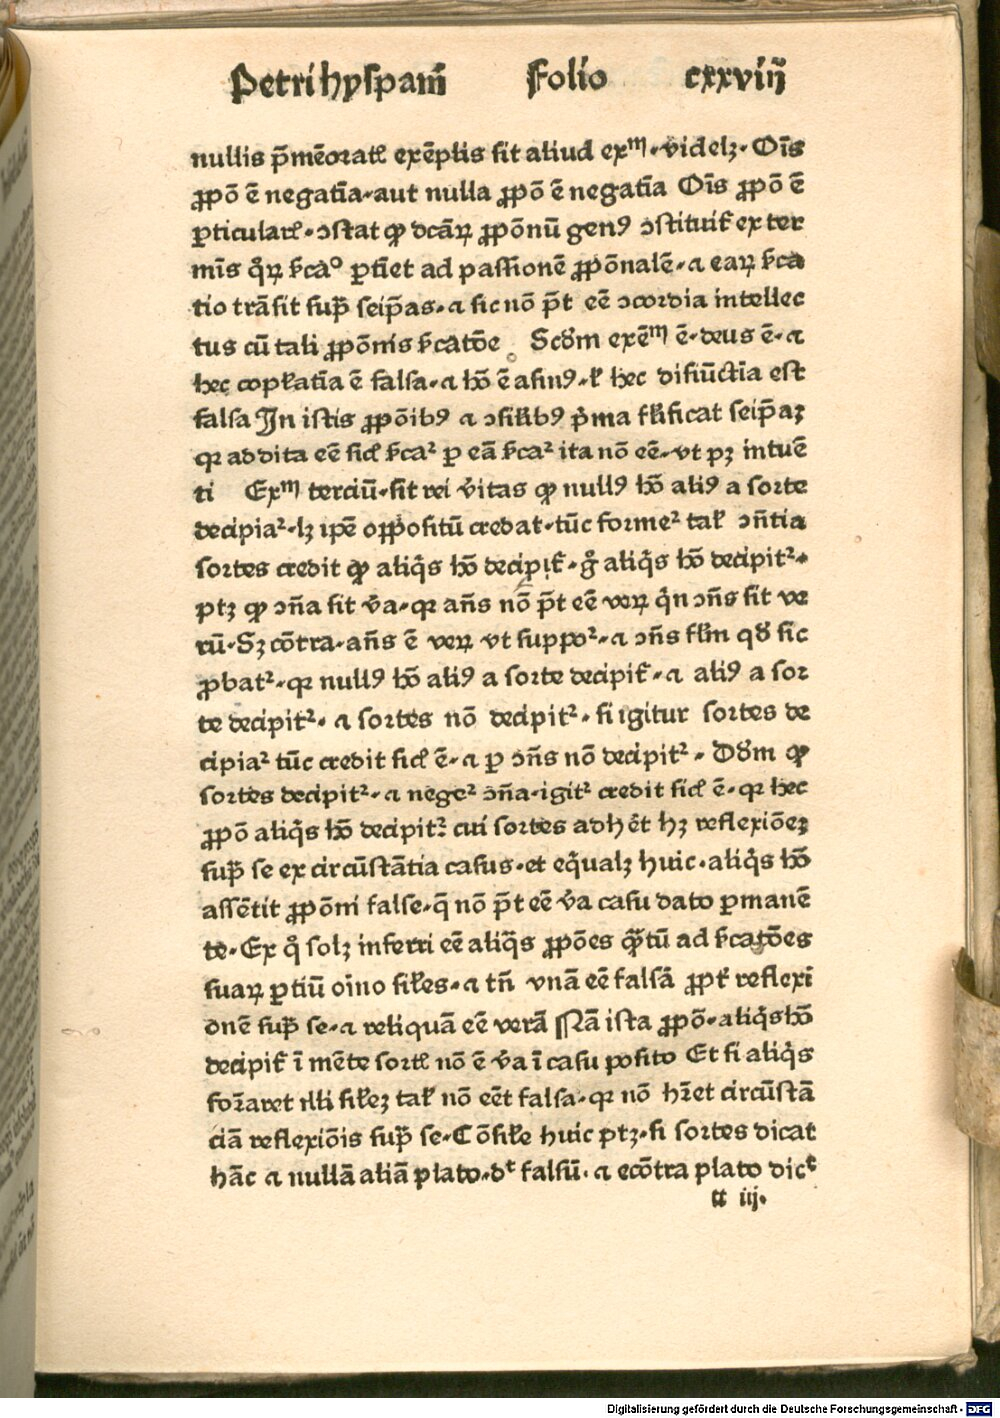 Petri hyspani̅ Folio cxxviij
nullis p̅me̅oratꝭ exe̅plis sit aliud exᵐ·videlꝫ·Oı̅s
ꝓpo̅ e̅ negati̅a·aut nulla ꝓpo̅ e̅ negati̅a Oı̅s ꝓpo̅ e̅
ꝑticularꝭ·ↄstat ꝙ dca̅ꝝ ꝓpo̅nu̅ genꝰ ↄstituit᷑ ex ter
mı̅s q̊ꝝ ẜca° ꝑti̅et ad passione̅ ꝓpo̅nale̅·⁊ eaꝝ ẜca
tio tra̅sit sup̅ seip̅as·⁊ sic no̅ p̅t ee̅ ↄcordia intellec
tus cu̅ tali ꝓpo̅nis ẜcato̅e Scd̅m exe̅ᵐ e̅·deus e̅·⁊
hec copl̅atia e̅ falsa·⁊ ho̅ e̅ asinꝰ·ł hec disiu̅ctia est
falsa In istis ꝓpo̅ibꝰ ⁊ ↄsil̅ibꝰ p̊ma fl̅ificat seip̅aꝫ
qꝛ addita ee̅ sicꝭ ẜcaᷣ ꝑ ea̅ ẜcaᷣ ita no̅ ee̅·vt pꝫ intue̅
ti Exᵐ terciu̅·sit rei v̊itas ꝙ nullꝰ ho̅ aliꝰ a sorte
decipiaᷣ·lꝫ ipe̅ oppositu̅ credat·tu̅c formeᷣ tal̅ ↄn̅tia
sortes credit ꝙ aliq̊s ho̅ decipit᷑·g̊ aliq̊s ho̅ decipitᷣ·
ptꝫ ꝙ ↄn̅a sit v̊a·qꝛ an̅s no̅ p̅t ee̅ veꝝ q̊n ↄn̅s sit ve
ru̅·Sꝫ co̅tra·an̅s e̅ veꝝ vt suppoᷣ·⁊ ↄn̅s fl̅m qd̅ sic
ꝓbatᷣ·qꝛ nullꝰ ho̅ aliꝰ a sorte decipit᷑·⁊ aliꝰ a sor
te decipitᷣ·⁊ sortes no̅ decipitᷣ·si igitur sortes de
cipiaᷣ tu̅c credit sicꝭ e̅·⁊ ꝑ ↄn̅s no̅ decipitᷣ·Dd̅m ꝙ
sortes decipitᷣ·⁊ negeᷣ ↄn̅a·igitᷣ credit sicꝭ e̅·qꝛ hec
ꝓpo̅ aliq̊s ho̅ decipitᷣ: cui sortes adhe̊t hꝫ reflexio̅eꝫ
sup̅ se ex circu̅sta̅tia casus·et eq̊ualꝫ huic·aliq̊s ho̅
asse̅tit ꝓpo̅ni false·q̅ no̅ p̅t ee̅ v̊a casu dato ꝑmane̅
te·Ex q̊ solꝫ inferri ee̅ aliq̅s ꝓpo̅es q̅̅tu̅ ad ẜcato̅es
suaꝝ ꝑtiu̅ oi̅no sil̅es·⁊ tn̅ vna̅ ee̅ falsa̅ ꝓpt᷑ reflexi
one̅ sup̅ se·⁊ reliqua̅ ee̅ vera̅ Na̅ ista ꝓpo̅·aliq̊s ho̅
decipit᷑ ı̅ me̅te sortꝭ no̅ e̅ v̊a ı̅ casu posito Et si aliq̊s
for̅aret illi sil̅eꝫ tal̅ no̅ ee̅t falsa·qꝛ no̅ hr̅et circu̅sta̅
cia̅ reflexio̅is sup̅ se·Co̅sil̅e huic ptꝫ·si sortes dicat
ha̅c ⁊ nulla̅ alia̅ plato·dᵗ falsu̅·⁊ eco̅tra plato dicᵗ
tt iij·
Digitalisierung gefördert durch die Deutsche Forschungsgemeinschaft · DFG